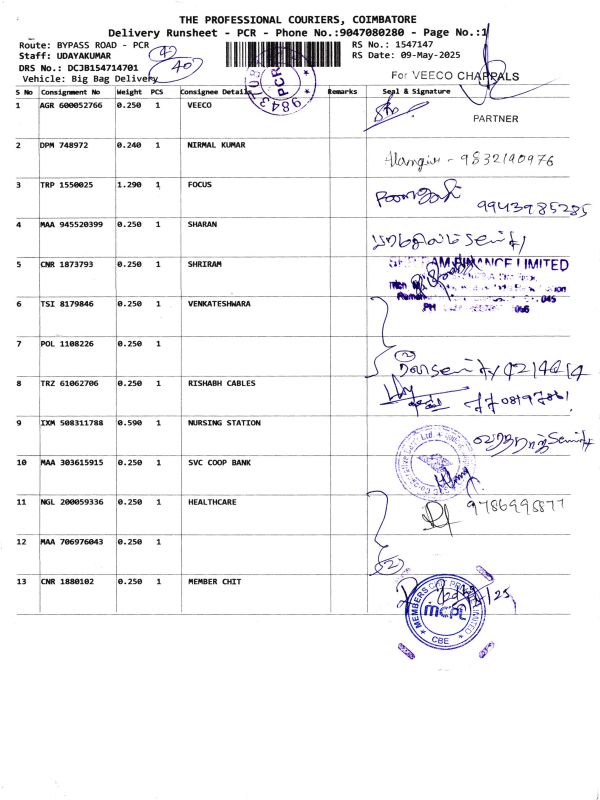 THE PROFESSIONAL COURIERS, COIMBATORE
Delivery Runsheet - PCR - Phone No.:9047080280 - Page No.:1
Route: BYPASS ROAD - PCR
Staff: UDAYAKUMAR
DRS No.: DCJB154714701
Vehicle: Big Bag Delivery
40
RS No.: 1547147
RS Date: 09-May-2025
PCR
For VEECO CHAPPALS
S No Consignment No Weight PCS Consignee Details Remarks Seal & Signature
1 AGR 600052766 0.250 1 VEECO
PARTNER
2 DPM 748972 0.240 1 NIRMAL KUMAR
9832190976
3 TRP 1550025 1.290 1 FOCUS
9943985285
4 MAA 945520399 0.250 1 SHARAN
5 CNR 1873793 0.250 1 SHRIRAM
FINANCE LIMITED
6 TSI 8179846 0.250 1 VENKATESHWARA
7 POL 1108226 0.250 1
2
8 TRZ 61062706 0.250 1 RISHABH CABLES
9 IXM 508311788 0.590 1 NURSING STATION
10 MAA 303615915 0.250 1 SVC COOP BANK
11 NGL 200059336 0.250 1 HEALTHCARE
12 MAA 706976043 0.250 1
2
13 CNR 1880102 0.250 1 MEMBER CHIT
MEMBERS
mcpl
CBE